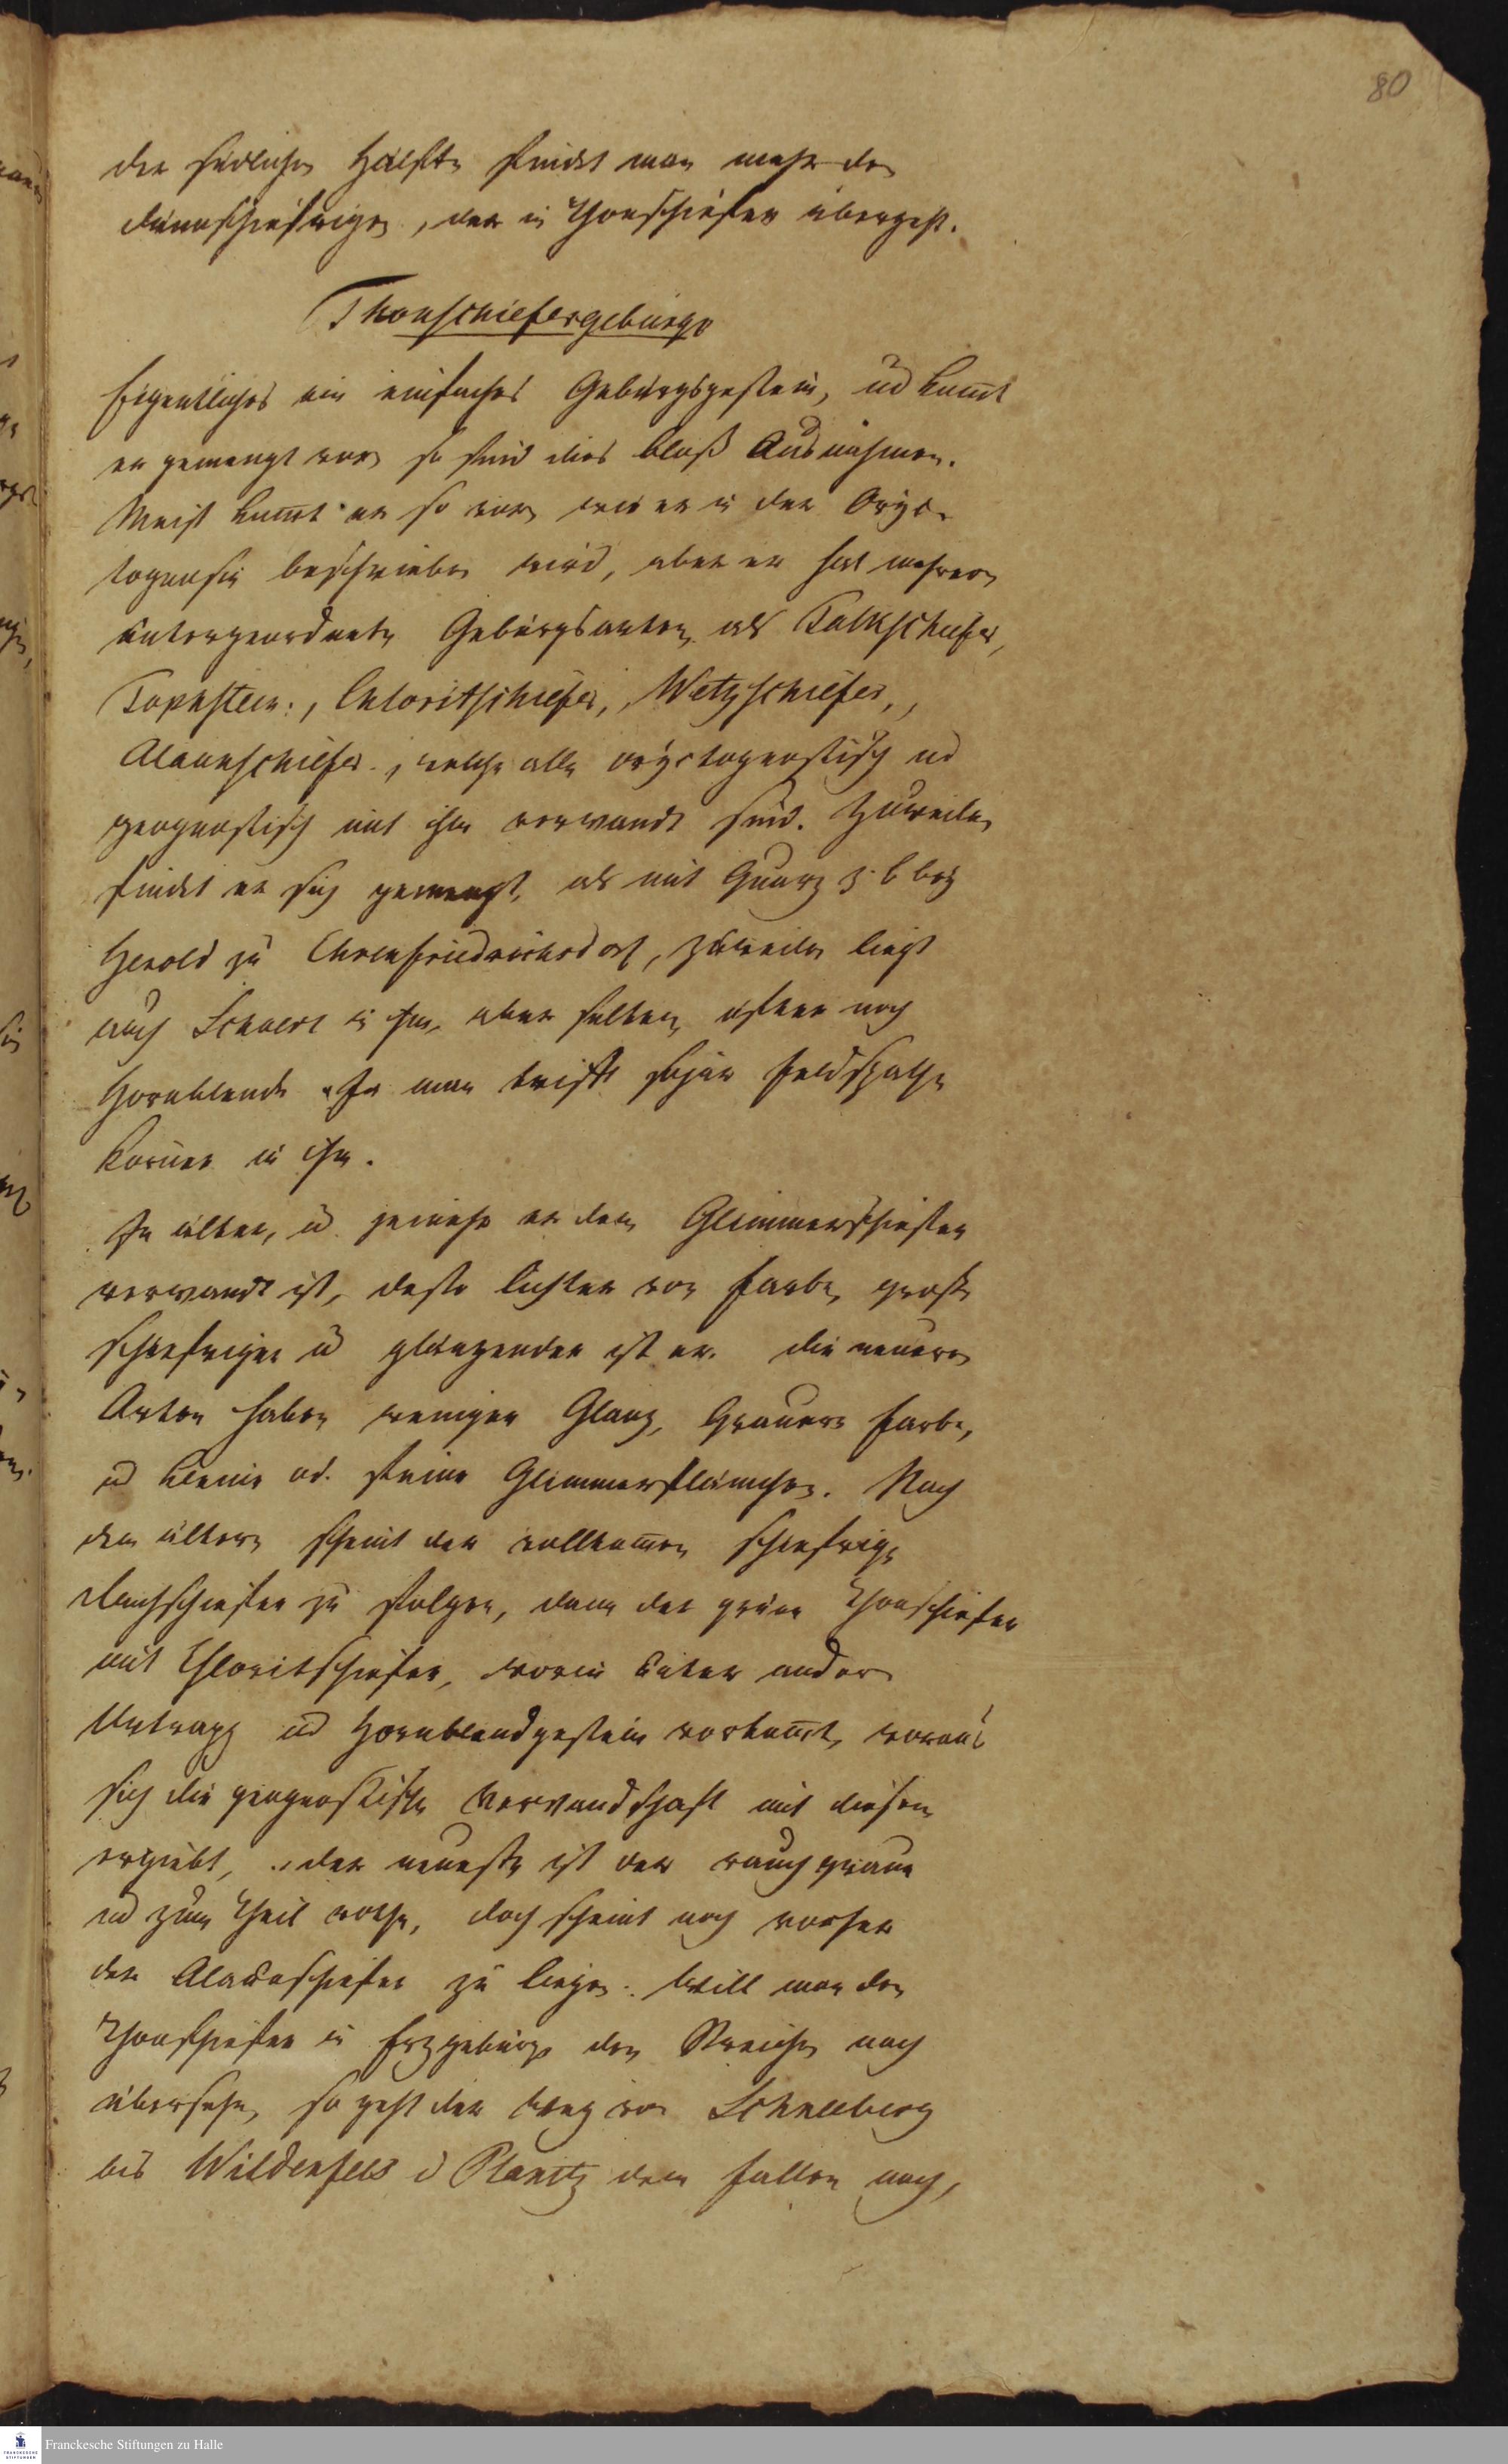 80
der südlichen Hälfte findet man mehr den
dünnschiefrigen, der in Thonschiefer übergeht.
Thonschiefergebürge
Eigentliches ein einfaches Gebürgsgestein, ud kom̄t
er gemengt vor, so sind dies bloß Ausnahmen.
Meist kom̄t er so vor, wie er in der Oryc-
tognosie beschrieben wird, aber er hat mehrere
untergeordnete Gebürgsarten, als Talkschiefer,
Topfstein, Chloritschiefer, Wetzschiefer,
Alaunschiefer, welche alle oryctognostisch ud
geognostisch mit ihm verwandt sind. Zuweilen
findet er sich gemengt, als mit Quarz z. b bey
Herold zu Ehrenfriedrichsdorf, zuweilen liegt
auch Schoerl in ihm, aber selten, öfterer noch
Hornblende. Ja man trifft sogar Feldspath
Körner in ihm.
Je älter, u jemehr er dem Glimmerschiefer
verwandt ist, desto lichter von Farbe, grob
schiefriger u glänzender ist er. die neuern
Arten haben weniger Glanz, Grauere Farbe,
u kleine od. feine Glimmerflämchen. Nach
dem ältern scheint der vollkom̄en schiefrige
Dachschiefer zu folgen, dann der grüne Thonschiefer
mit Chloritschiefer, worin unter andern
Urtrapp ud Hornblendgestein vorkom̄t, woraus
sich die geognostische Verwandschaft mit diesen
ergiebt, der neueste ist der rauchgraue
ud zum Theil rothe, doch scheint noch vorher
der Alaunschiefer zu liegen. Will man den
Thonschiefer in Erzgebürge dem Streichen nach
übersehn, so geht der Weg von Schneeberg
bis Wildenfels u Planitz dem Fallen nach,
Franckesche Stiftungen zu Halle